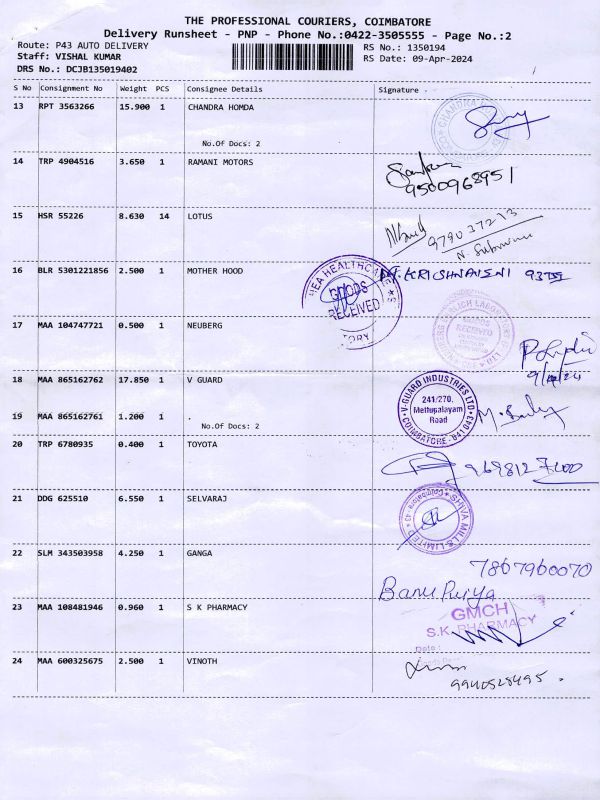 THE PROFESSIONAL COURIERS, COIMBATORE
Delivery Runsheet - PNP - Phone No.:0422-3505555 - Page No.:2
Route: P43 AUTO DELIVERY
RS No.: 1350194
Staff: VISHAL KUMAR
RS Date: 09-Apr-2024
DRS No.: DCJB135019402
S No Consignment No Weight PCS Consignee Details Signature
13 RPT 3563266 15.900 1 CHANDRA HOMDA
No.Of Docs: 2
14 TRP 4904516 3.650 1 RAMANI MOTORS
9500968951
15 HSR 55226 8.630 14 LOTUS
979037213
16 BLR 5301221856 2.500 1 MOTHER HOOD
GOODS RECEIVED
17 MAA 104747721 0.500 1 NEUBERG
GOODS RECEIVED
18 MAA 865162762 17.850 1 V GUARD
V-GUARD INDUSTRIES LTD.
241/270,
Mettupalayam
Road
COIMBATORE - 641 043
19 MAA 865162761 1.200 1 .
No.Of Docs: 2
20 TRP 6780935 0.400 1 TOYOTA
21 DDG 625510 6.550 1 SELVARAJ
SHIVA MILLS LIMITED
Coimbatore - 43
22 SLM 343503958 4.250 1 GANGA
7867960070
Banu Priya
23 MAA 108481946 0.960 1 S K PHARMACY
GMCH
S.K. PHARMACY
Date :
24 MAA 600325675 2.500 1 VINOTH
9940528495.